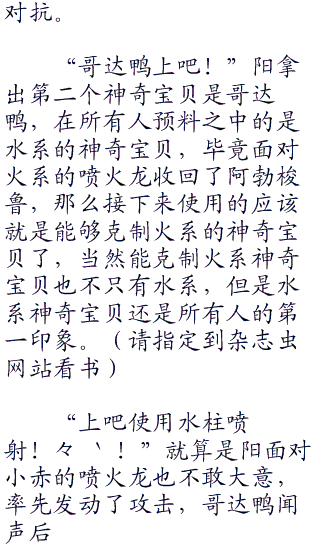 对抗。
“哥达鸭上吧！”阳拿
出第二个神奇宝贝是哥达
鸭，在所有人预料之中的是
水系的神奇宝贝，毕竟面对
火系的喷火龙收回了阿勃梭
鲁，那么接下来使用的应该
就是能够克制火系的神奇宝
贝了，当然能克制火系神奇
宝贝也不只有水系，但是水
系神奇宝贝还是所有人的第
一印象。（请指定到杂志虫
网站看书）
“上吧使用水柱喷
射！々｀！”就算是阳面对
小赤的喷火龙也不敢大意，
率先发动了攻击，哥达鸭闻
声后